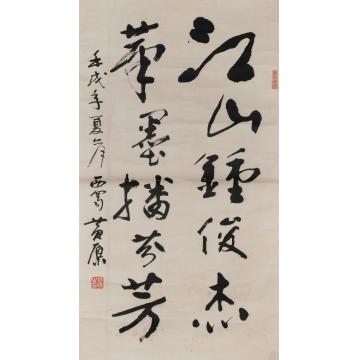 江山鍾俊杰
笔墨播芬芳
壬戌年夏六月西蜀黄原